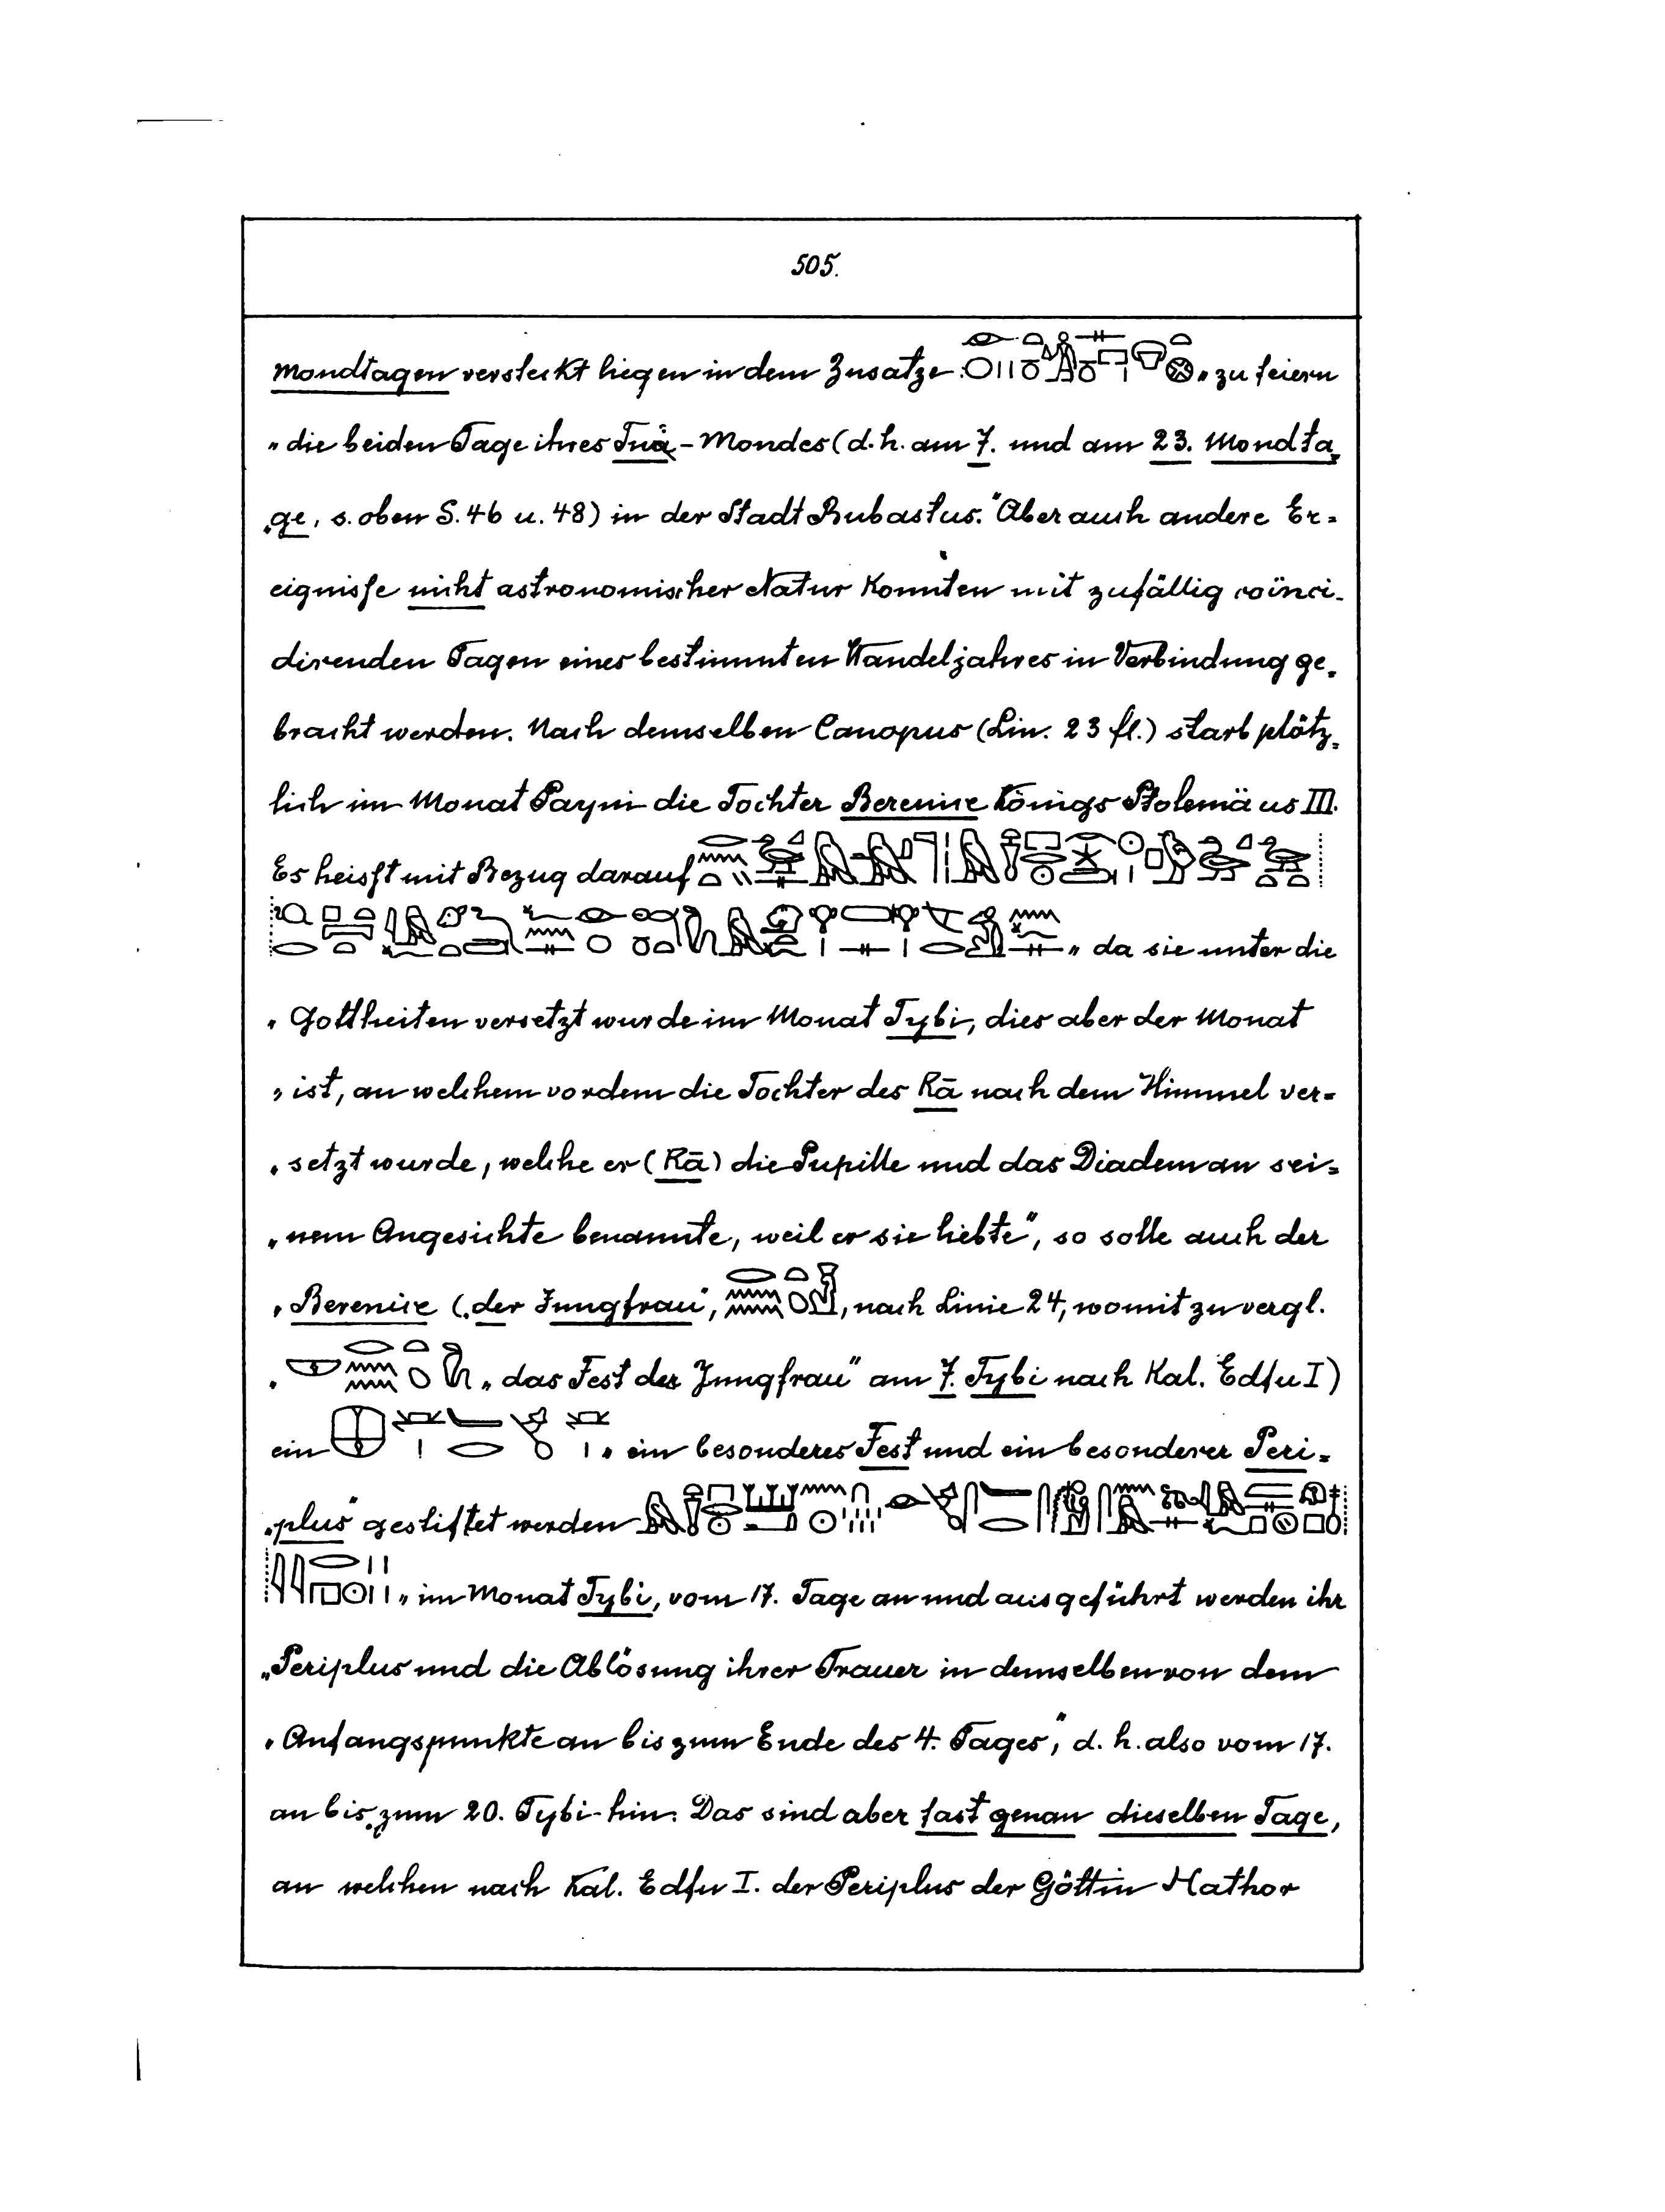 505.
Mondtagen versteckt liegen in dem Zusatze: „zu feiern
„die beiden Tage ihres Tnȧ-Mondes (d.h. am 7. und am 23. Mondta„
„ge, s. oben S. 46 u. 48) in der Stadt Bubastus." Aber auch andere Er=
eignisse nicht astronomischer Natur konnten mit zufällig coïnci-
direnden Tagen eines bestimmten Wandeljahres in Verbindung ge=
bracht werden. Nach demselben Canopus (Lin. 23 fl.) starb plötz=
lich im Monat Payni die Tochter Berenice Königs Ptolemäus III.
Es heisst mit Bezug darauf
„da sie unter die
„Gottheiten versetzt wurde im Monat Tybi, dies aber der Monat
„ist, an welchem vordem die Tochter des Rā nach dem Himmel ver=
„setzt wurde, welche er (Rā) die Pupille und das Diadem an sei=
„nem Angesichte benannte, weil er sie liebte", so solle auch der
„Berenice („der Jungfrau", , nach Linie 24, womit zu vergl.
„das Fest der Jungfrau" am 7. Tybi nach Kal. Edfu I)
ein „ein besonderes Fest und ein besonderer Peri=
„plus" gestiftet werden
„im Monat Tybi, vom 17. Tage an und ausgeführt werden ihr
„Periplus und die Ablösung ihrer Trauer in demselben von dem
„Anfangspunkte an bis zum Ende des 4. Tages", d. h. also vom 17.
an bis zum 20. Tybi hin. Das sind aber fast genau dieselben Tage,
an welchen nach Kal. Edfu I. der Periplus der Göttin Hathor